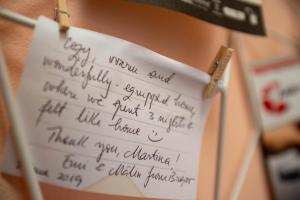 Cozy, warm and
wonderfully-equipped home,
where we spent 3 nights &
felt like home
Thank you, Martina!
2019